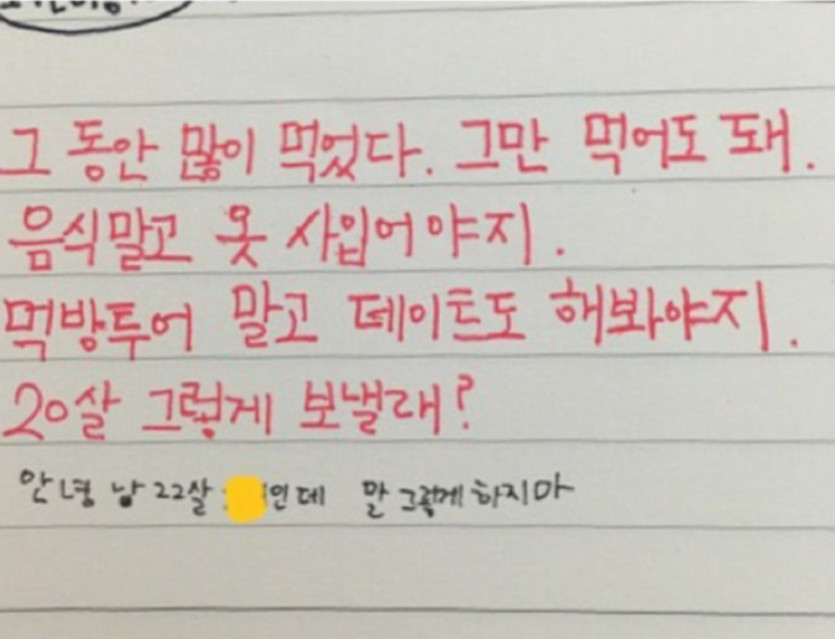 그 동안 많이 먹었다. 그만 먹어도 돼.
음식말고 옷 사입어야지.
먹방투어 말고 데이트도 해봐야지.
20살 그렇게 보낼래?
안녕 낭 22살 인데 말 그렇게하지마